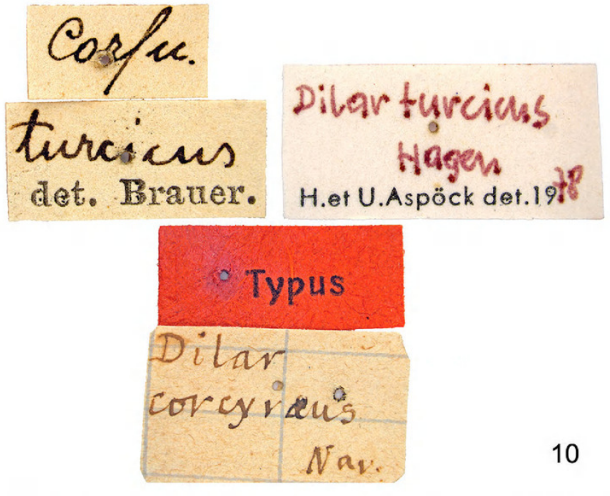 Corfu.
turcicus
det. Brauer.
Dilar turcicus
Hagen
H.et U.Aspöck det.1978
Typus
Dilar
corcyræus
Nav.
10